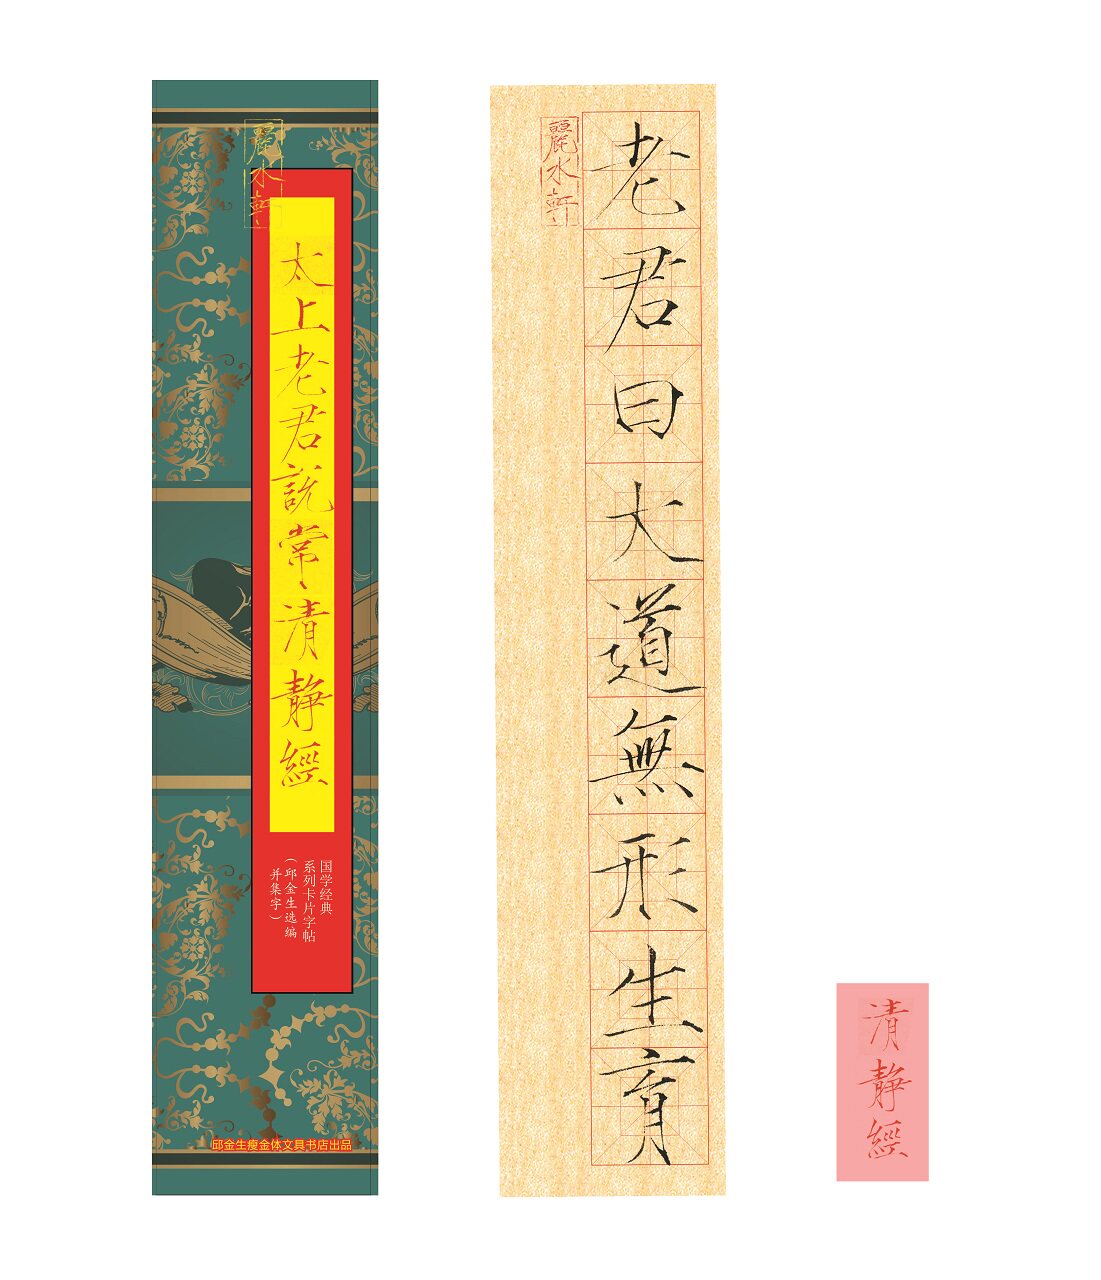 麗水軒
太上老君說常清靜經
国学经典
系列卡片字帖
（邱金生选编
并集字）
邱金生瘦金体文具书店出品
麗水軒
老君曰大道無形生育
清靜經